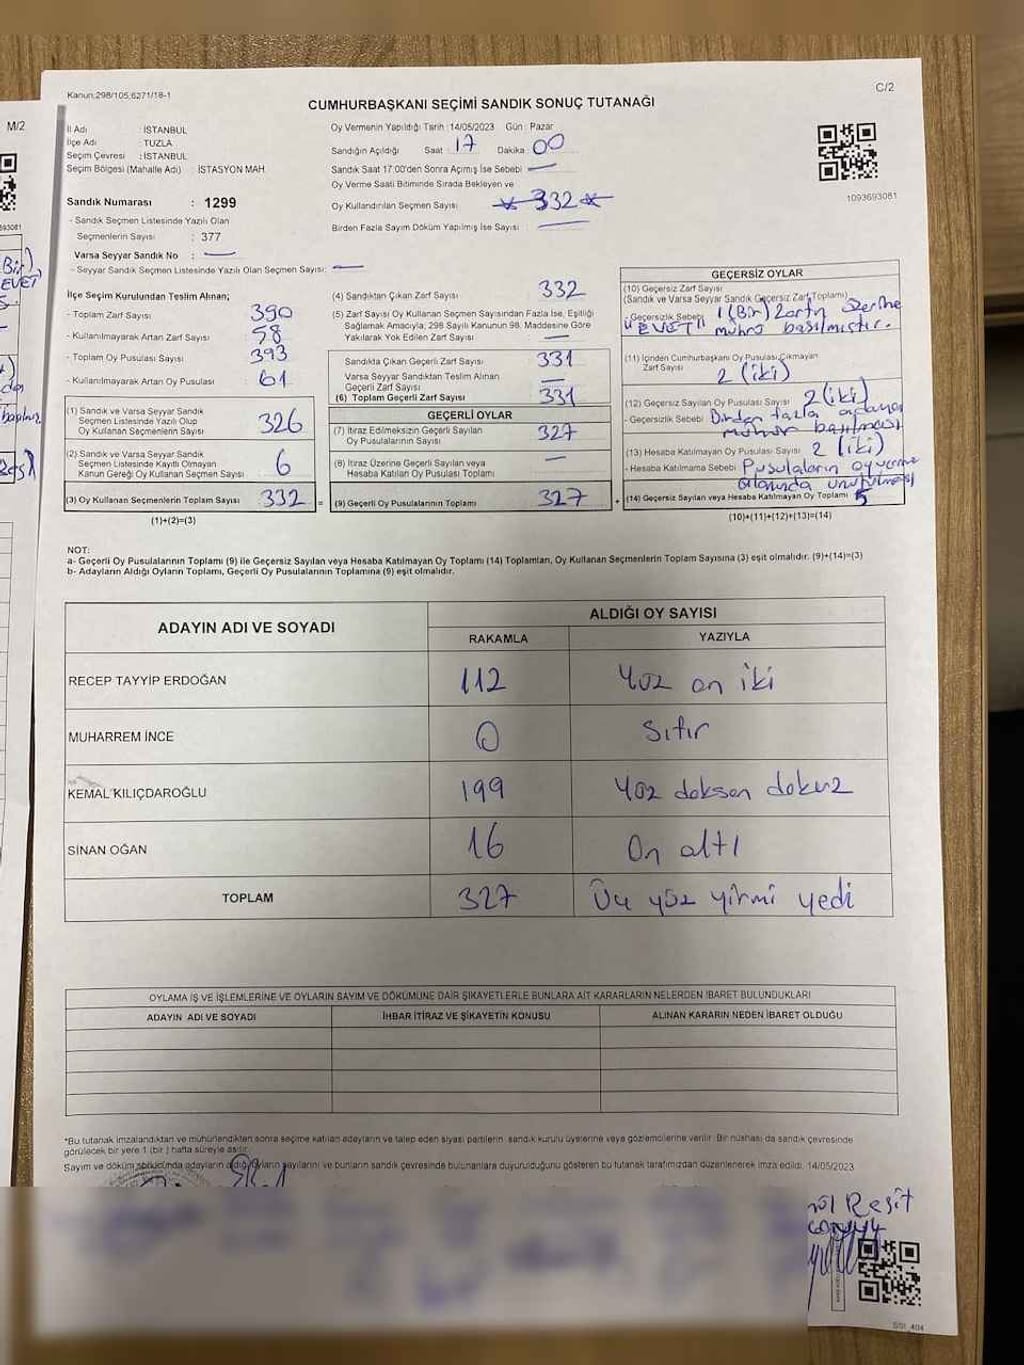 Kanun:298/105,6271/18-1
C/2
CUMHURBAŞKANI SEÇİMİ SANDIK SONUÇ TUTANAĞI
M/2
İl Adı : İSTANBUL
İlçe Adı : TUZLA
Seçim Çevresi : İSTANBUL
Seçim Bölgesi (Mahalle Adı) : İSTASYON MAH
Sandık Numarası : 1299
- Sandık Seçmen Listesinde Yazılı Olan
Seçmenlerin Sayısı : 377
Varsa Seyyar Sandık No : —
- Seyyar Sandık Seçmen Listesinde Yazılı Olan Seçmen Sayısı: —
Oy Vermenin Yapıldığı Tarih :14/05/2023 Gün : Pazar
Sandığın Açıldığı Saat : 17 Dakika : 00
Sandık Saat 17:00'den Sonra Açılmış İse Sebebi —
Oy Verme Saati Bitiminde Sırada Bekleyen ve
Oy Kullandırılan Seçmen Sayısı 332
Birden Fazla Sayım Döküm Yapılmış İse Sayısı : —
1093693081
İlçe Seçim Kurulundan Teslim Alınan;
- Toplam Zarf Sayısı 390
- Kullanılmayarak Artan Zarf Sayısı 58
- Toplam Oy Pusulası Sayısı 393
- Kullanılmayarak Artan Oy Pusulası 61
(1) Sandık ve Varsa Seyyar Sandık
Seçmen Listesinde Yazılı Olup
Oy Kullanan Seçmenlerin Sayısı 326
(2) Sandık ve Varsa Seyyar Sandık
Seçmen Listesinde Kayıtlı Olmayan
Kanun Gereği Oy Kullanan Seçmen Sayısı 6
(3) Oy Kullanan Seçmenlerin Toplam Sayısı 332 =
(1)+(2)=(3)
(4) Sandıktan Çıkan Zarf Sayısı 332
(5) Zarf Sayısı Oy Kullanan Seçmen Sayısından Fazla İse, Eşitliği
Sağlamak Amacıyla, 298 Sayılı Kanunun 98. Maddesine Göre
Yakılarak Yok Edilen Zarf Sayısı —
Sandıkta Çıkan Geçerli Zarf Sayısı 331
Varsa Seyyar Sandıktan Teslim Alınan
Geçerli Zarf Sayısı —
(6) Toplam Geçerli Zarf Sayısı 331
GEÇERLİ OYLAR
(7) İtiraz Edilmeksizin Geçerli Sayılan
Oy Pusulalarının Sayısı 327
(8) İtiraz Üzerine Geçerli Sayılan veya
Hesaba Katılan Oy Pusulası Toplamı —
(9) Geçerli Oy Pusulalarının Toplamı 327 +
GEÇERSİZ OYLAR
(10) Geçersiz Zarf Sayısı
(Sandık ve Varsa Seyyar Sandık Geçersiz Zarf Toplamı)
-Geçersizlik Sebebi 1 (Bir) Zarfın üzerine
"EVET" mührü basılmıştır.
(11) İçinden Cumhurbaşkanı Oy Pusulası Çıkmayan
Zarf Sayısı 2 (iki)
(12) Geçersiz Sayılan Oy Pusulası Sayısı 2 (iki)
- Geçersizlik Sebebi Birden fazla alana
mühür basılması
(13) Hesaba Katılmayan Oy Pusulası Sayısı 2 (iki)
- Hesaba Katılmama Sebebi Pusulaların oy verme
alanında unutulması
(14) Geçersiz Sayılan veya Hesaba Katılmayan Oy Toplamı 5
(10)+(11)+(12)+(13)=(14)
NOT:
a- Geçerli Oy Pusulalarının Toplamı (9) ile Geçersiz Sayılan veya Hesaba Katılmayan Oy Toplamı (14) Toplamları, Oy Kullanan Seçmenlerin Toplam Sayısına (3) eşit olmalıdır. (9)+(14)=(3)
b- Adayların Aldığı Oyların Toplamı, Geçerli Oy Pusulalarının Toplamına (9) eşit olmalıdır.
ADAYIN ADI VE SOYADI ALDIĞI OY SAYISI
RAKAMLA YAZIYLA
RECEP TAYYİP ERDOĞAN 112 Yüz on iki
MUHARREM İNCE 0 Sıfır
KEMAL KILIÇDAROĞLU 199 Yüz doksan dokuz
SİNAN OĞAN 16 On altı
TOPLAM 327 Üç yüz yirmi yedi
OYLAMA İŞ VE İŞLEMLERİNE VE OYLARIN SAYIM VE DÖKÜMÜNE DAİR ŞİKAYETLERLE BUNLARA AİT KARARLARIN NELERDEN İBARET BULUNDUKLARI
ADAYIN ADI VE SOYADI İHBAR İTİRAZ VE ŞİKAYETİN KONUSU ALINAN KARARIN NEDEN İBARET OLDUĞU
*Bu tutanak imzalandıktan ve mühürlendikten sonra seçime katılan adayların ve talep eden siyasi partilerin sandık kurulu üyelerine veya gözlemcilerine verilir. Bir nüshası da sandık çevresinde
görülecek bir yere 1 (bir) hafta süreyle asılır.
Sayım ve döküm sonucunda adayların aldığı oyların sayılarını ve bunların sandık çevresinde bulunanlara duyurulduğunu gösteren bu tutanak tarafımızdan düzenlenerek imza edildi. 14/05/2023
Reşit